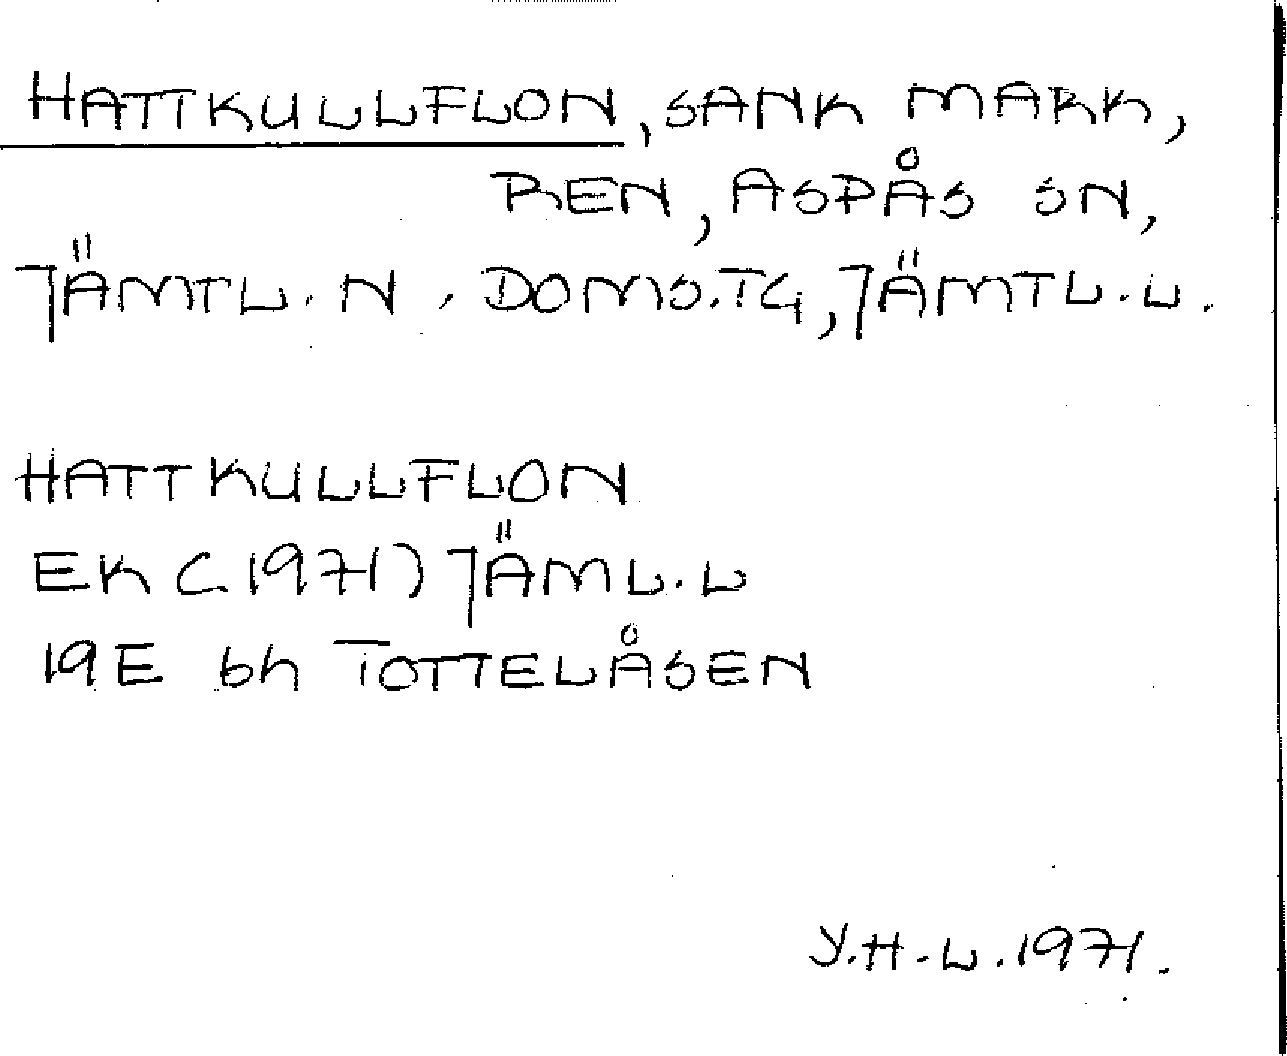 HATTKULLFLON, SANK MARK,
REN, ASPÅS SN,
JÄMTL. N. DOMS.TG, JÄMTL. L.
HATTKULLFLON
EK (1971) JÄML. L
19E bh TOTTELÅSEN
Y.H-L. 1971.